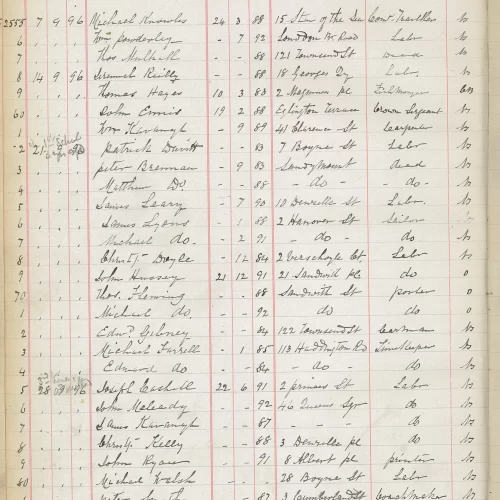 2555 7 9 96 Michael Knowles 24 3 88 15 Star of the Sea Cont. Traveller
6 Wm Powderly - 7 92 London Br Road Labr
7 Thos Mulhall - - 88 121 Townsend St Dead
8 14 9 96 Jeremiah Reilly - - 88 18 Georges Qy Labr
9 Thomas Hayes 10 3 83 2 Magennis pl
60 John Ennis 19 2 88 Eglington Terrace Crown Sergeant
1 Wm Kavanagh - 9 89 41 Clarence St Carpenter
2 21 9 96 Patrick Davitt - - 83 7 Boyne St Labr
3 Peter Brennan - 9 83 Sandymount dead
4 Matthew Do - - 88 - do - - do -
5 James Leary - 7 90 10 Denzille St Labr
6 James Lyons - 1 88 2 Hanover St Sailor
7 Michael do - 2 91 - do - do
8 Christr Doyle - 12 84 2 Verschoyle Ct Labr
9 John Hussey 21 12 91 21 Sandwith pl do o
70 Thos. Fleming - - 88 Sandwith St porter o
1 Michael do - - 92 do do o
2 Edwd Gibney - - 84 122 Townsend St Carman
3 Michael Farrell - 1 85 113 Haddington Rd Timekeeper
4 Edward do - - 84 - do - do
5 28 9 96 Joseph Cashell 22 6 91 2 princes St Labr
6 John Meleady - - 92 46 Queens Sqr do
7 James Kavanagh - - 87 - do - do
8 Christr Kelly - - 88 3 Denzille pl do
9 John Ryan - - 91 8 Albert pl printer
80 Michael Walsh - - 28 Boyne St Labr
87 3 Cumberland St Coachmaker